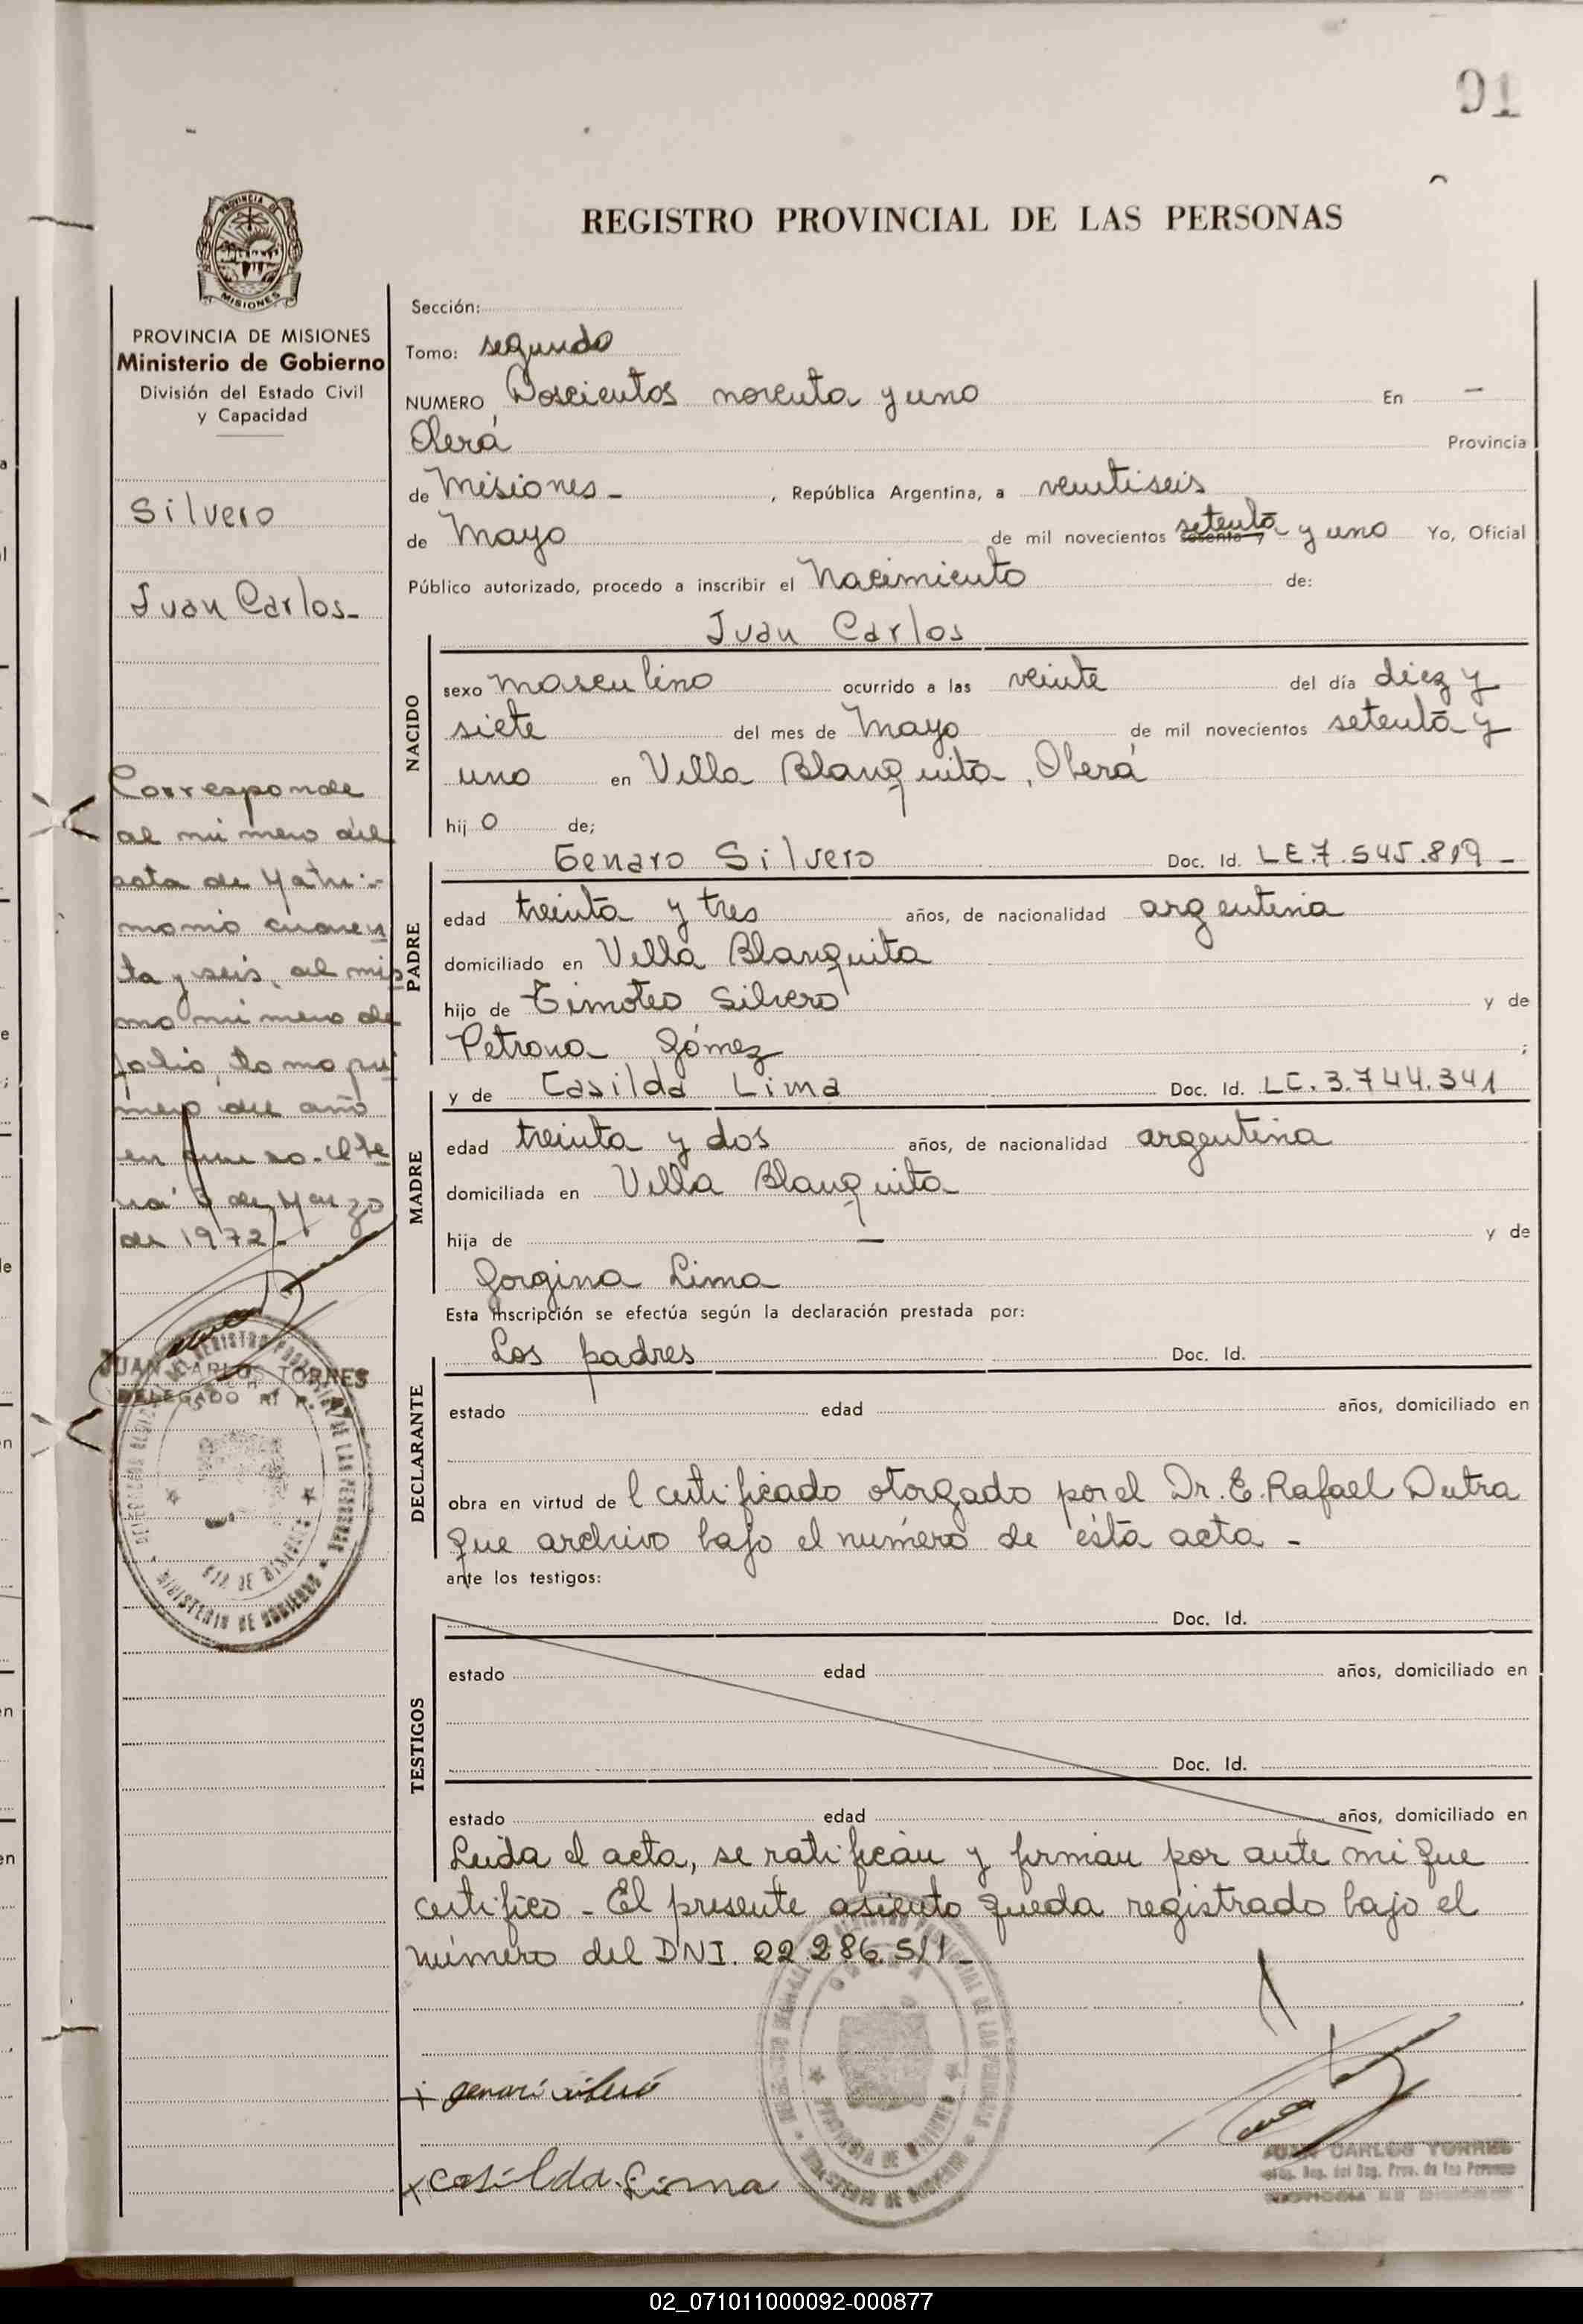 91
REGISTRO PROVINCIAL DE LAS PERSONAS
PROVINCIA DE
MISIONES
PROVINCIA DE MISIONES
Ministerio de Gobierno
División del Estado Civil
y Capacidad
Silvero
Juan Carlos-
Corresponde
al número del
acta de Matri-
monio cuaren
ta y seis, al mis
mo número de
folio, tomo pri
mero del año
en curso. Obe
rá 3 de Marzo
de 1972-
JUAN CARLOS TORRES
DELEGADO
Sección:
Tomo: segundo
NUMERO Doscientos noventa y uno En -
Oberá Provincia
de Misiones- , República Argentina, a veintiseis
de Mayo de mil novecientos setenta y uno Yo, Oficial
Público autorizado, procedo a inscribir el Nacimiento de:
Juan Carlos
NACIDO
sexo masculino ocurrido a las veinte del día diez y
siete del mes de Mayo de mil novecientos setenta y
uno en Villa Blanquita, Oberá
hijo de;
Genaro Silvero Doc. Id. L.E. 7.545.819-
PADRE
edad treinta y tres años, de nacionalidad argentina
domiciliado en Villa Blanquita
hijo de Timoteo Silvero y de
Petrona Gómez ;
y de Casilda Lima Doc. Id. L.C. 3.744.341
MADRE
edad treinta y dos años, de nacionalidad argentina
domiciliada en Villa Blanquita
hija de - y de
Gorgina Lima
Esta inscripción se efectúa según la declaración prestada por:
Los padres Doc. Id.
DECLARANTE
estado edad años, domiciliado en
obra en virtud de l certificado otorgado por el Dr. E. Rafael Dutra
que archivo bajo el número de ésta acta -
ante los testigos:
Doc. Id.
TESTIGOS
estado edad años, domiciliado en
Doc. Id.
estado edad años, domiciliado en
Leida el acta, se ratifican y firman por ante mi que
certifico - El presente asiento queda registrado bajo el
número del DNI. 22.286.511-
MINISTERIO DE GOBIERNO
PROVINCIA DE MISIONES
x Genaro Silvero
x Casilda Lima
JUAN CARLOS TORRES
02_071011000092-000877